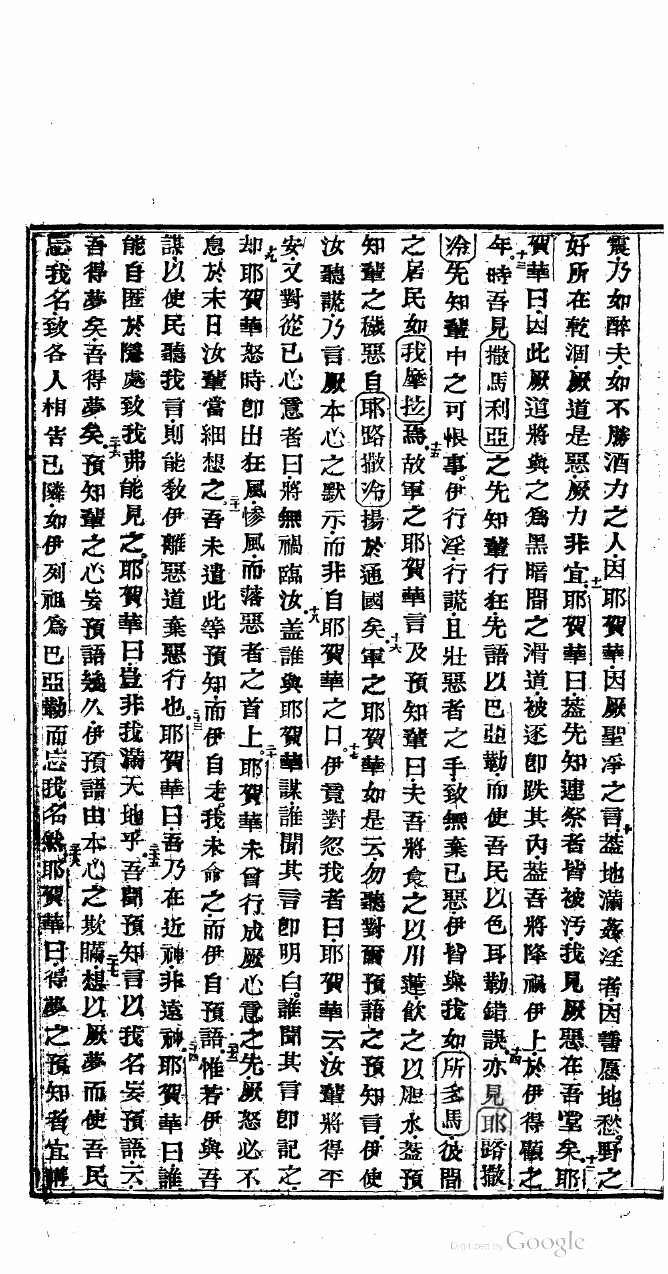 震乃如醉夫如不勝酒力之人因耶賀華因厥聖凈之言十蓋地滿姦淫者因詈愿地愁野之
好所在乾涸厥道是惡厥力非宜十一耶賀華曰蓋先知連祭者皆被污我見厥惡在吾堂矣十二耶
賀華曰因此厥道將與之為黑暗間之滑道被逐即跌其內蓋吾將降禍伊上於伊得顧之
年十三時吾見撒馬利亞之先知輩行狂先語以巴亞勒而使吾民以色耳勒錯誤十四亦見耶路撒
冷先知輩中之可恨事伊行淫行謊且壯惡者之手致無棄己惡伊皆與我如所多馬彼間
之居民如我摩拉焉十五故軍之耶賀華言及預知輩曰夫吾將食之以川蓮飲之以胆水蓋預
知輩之穢惡自耶路撒冷揚於通國矣十六軍之耶賀華如是云勿聽對爾預語之預知言伊使
汝聽謊乃言厥本心之默示而非自耶賀華之口十七伊竟對忽我者曰耶賀華云汝輩將得平
安又對從己心意者曰將無禍臨汝十八蓋誰與耶賀華謀誰聞其言即明白誰聞其言即記之
十九却耶賀華怒時即出狂風慘風而落惡者之首上二十耶賀華未曾行成厥心意之先厥怒必不
息於末日汝輩當細想之二十一吾未遣此等預知而伊自走我未命之而伊自預語二十二惟若伊與吾
謀以使民聽我言則能敎伊離惡道棄惡行也二十三耶賀華曰吾乃在近神非遠神二十四耶賀華曰誰
能自匿於隱處致我弗能見之耶賀華曰豈非我滿天地乎二十五吾聞預知言以我名妄預語云
吾得夢矣吾得夢矣二十六預知輩之心妄預語幾久伊預語由本心之欺瞞二十七想以厥夢而使吾民
忘我名致各人相告己隣如伊列祖為巴亞勒而忘我名然二十八耶賀華曰得夢之預知者宜講
Digitized by Google